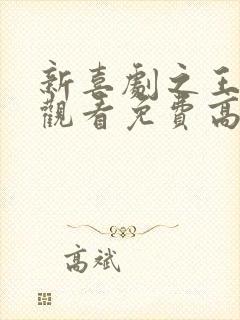 新喜劇之王
觀看免費高
高斌